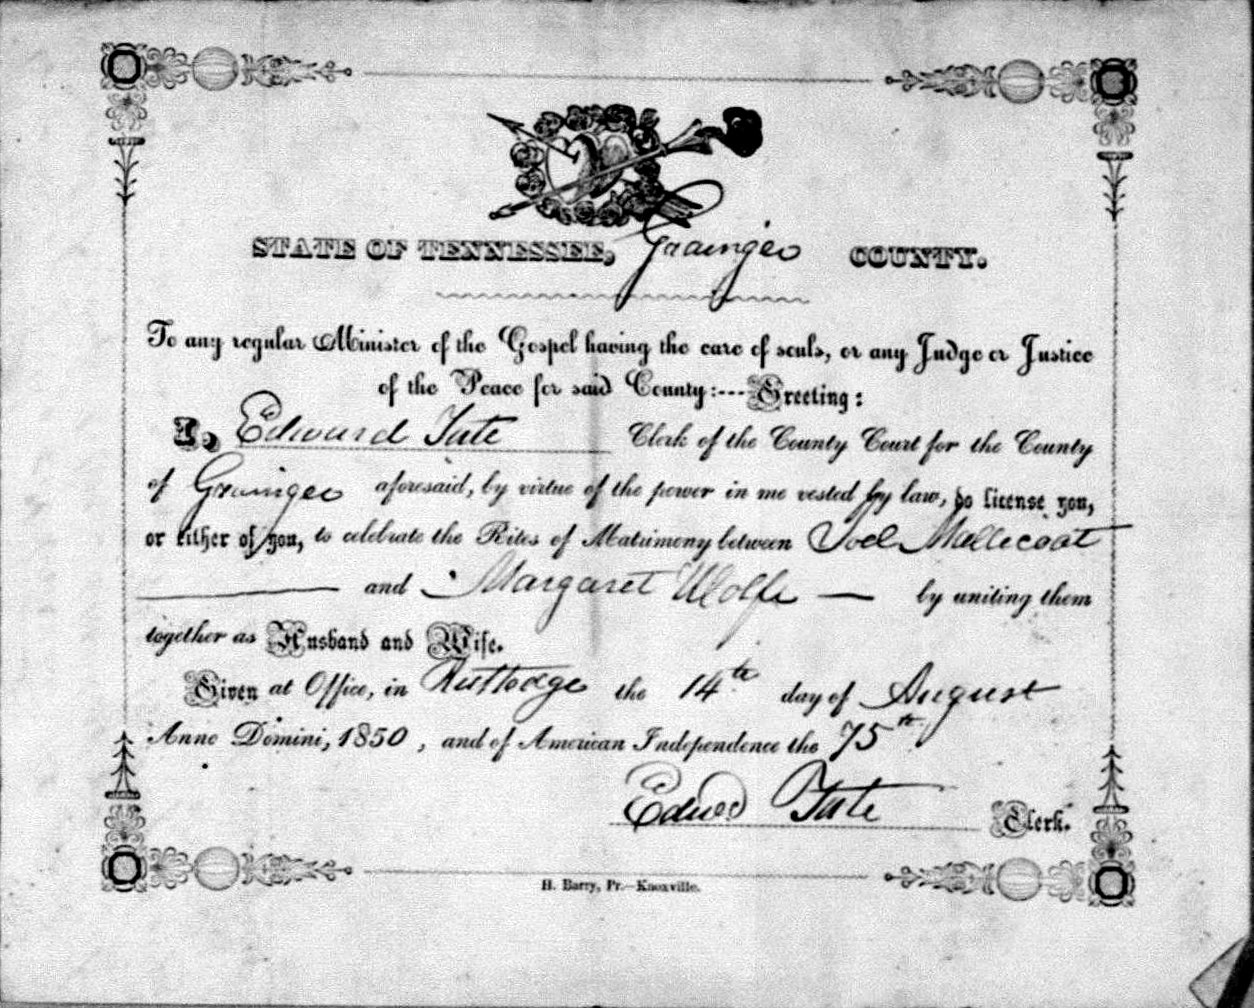 STATE OF TENNESSEE, Grainger COUNTY.
To any regular Minister of the Gospel having the care of souls, or any Judge or Justice
of the Peace for said County:---Greeting:
I, Edward Tate Clerk of the County Court for the County
of Grainger aforesaid, by virtue of the power in me vested by law, do license you,
or either of you, to celebrate the Rites of Matrimony between Joel Mallicoat
and Margaret Wolfe — by uniting them
together as Husband and Wife.
Given at Office, in Rutledge the 14th day of August
Anno Domini, 1850, and of American Independence the 75th
Edwd Tate Clerk.
H. Barry, Pr.—Knoxville.